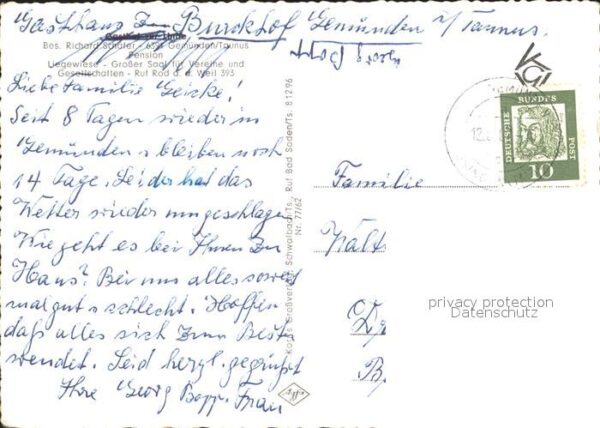 Gasthaus zum Burckhof Gemünden i/Taunus.
Georg Bopp
Bes. Richard Schäfer 6391 Gemünden/Taunus
Pension
Liegewiese - Großer Saal für Vereine und
Gesellschaften - Ruf Rod a. d. Weil 393
Liebe Familie Geizke!
Seit 8 Tagen wieder in
Gemünden & bleiben noch
14 Tage. Leider hat das
Wetter wieder umgeschlagen
Wie geht es bei Ihnen zu
Haus? Bei uns alles soweit
mal gut & schlecht. Hoffen
daß alles sich zum Best
wendet. Seid herzl. gegrüßt
Ihre Georg Bopp & Frau
Schwalbach/Ts., Ruf Bad Soden/Ts. 81296
Nr. 77/62
Agfa
Familie
Walt
B.
DEUTSCHE
BUNDES
POST
10
12.
privacy protection
Datenschutz